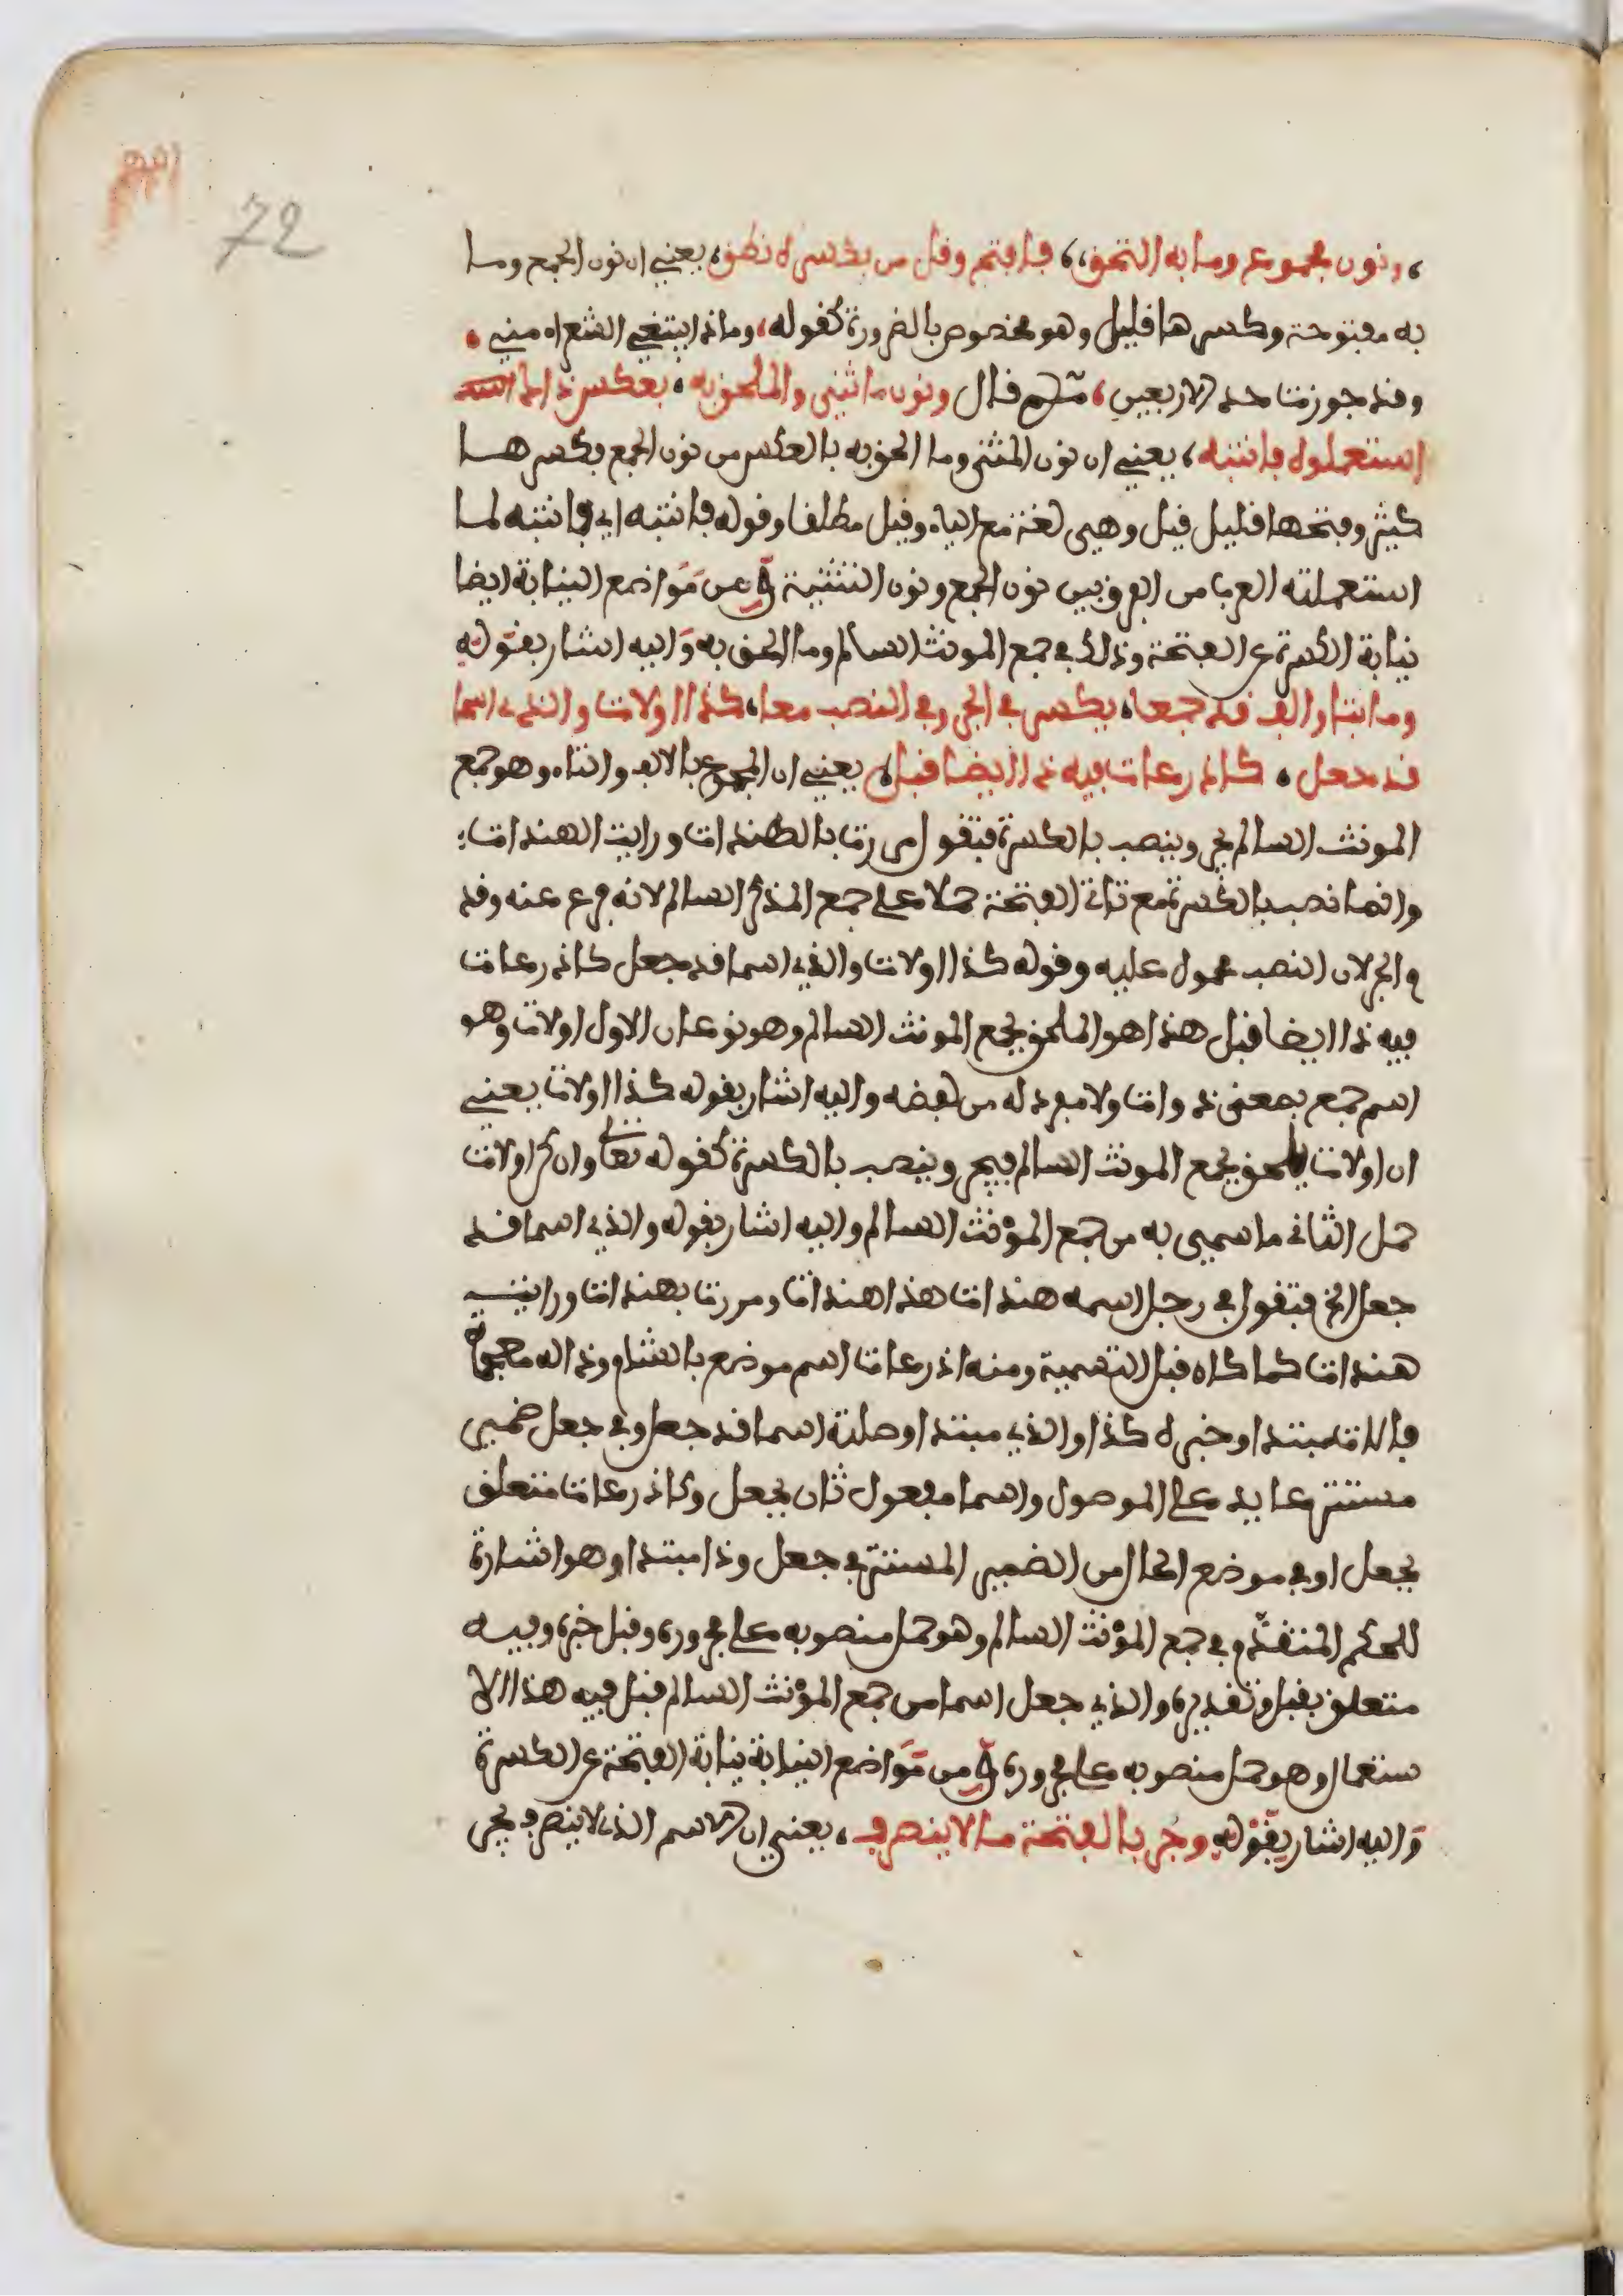 72
، ونون مجموع وما به التحق، فافتح وقل من بكسره نطق، يعني ان نون الجمع وما
به مفتوحة وكسرها قليل وهو مخصوص بالضرورة كقوله، وماذا يبتغي الشعراء مني .
وقد جوزت حد الاربعين، ثم قال ونون ما ثني والملحق به ، بعكس ذاك
استعملوه فانتبه ، يعني ان نون المثنى وما الحق به بالعكس من نون الجمع فكسرها
كثير وفتحها قليل قيل وهي لغة مع الياء وقيل مطلقا وقوله فانتبه اي فانتبه لما
استعملته العرب من الفرق بين نون الجمع ونون التثنية ومن مواضع النيابة ايضا
نيابة الكسرة عن الفتحة وذلك في جمع المونث السالم وما الحق به واليه اشار بقوله
وما بتا والف قد جمعا، يكسر في الجر وفي النصب معا، كذا اولات والذي اسما
قد جعل ، كاذرعات فيه ذا ايضا قبل، يعني ان المجموع بالالف والتاء وهو جمع
المونث السالم يجر وينصب بالكسرة فتقول مررت بالهندات ورايت الهندات؛
وانما نصب بالكسرة مع تاتي الفتحة حملا على جمع المذكر السالم لانه فرع عنه وقد
م الجر لان النصب محمول عليه وقوله كذا اولات والذي اسما قد جعل كاذرعات
فيه ذا ايضا قبل هذا هو الملحق بجمع المونث السالم وهو نوعان الاول اولات وهو
اسم جمع بمعنى ذوات ولا مفرد له من لفظه واليه اشار بقوله كذا اولات يعني
ان اولات يلحق بجمع المونث السالم فيجر وينصب بالكسرة كقوله تعالى وان كن اولات
حمل الثاني ما سمي به من جمع المؤنث السالم واليه اشار بقوله والذي اسما قد
جعل الخ فتقول في رجل اسمه هندات هذا هندات ومررت بهندات ورايت
هندات كما كان قبل التسمية ومنه اذرعات اسم موضع بالشام وذاله معجمة
فاولات مبتدا وخبره كذا والذي مبتدا وصلته اسما قد جعل وفي جعل ضمير
مستتر عايد على الموصول واسما مفعول ثان بجعل وكاذرعات متعلق
بجعل او في موضع الحال من الضمير المستتر في جعل وذا مبتدا وهو اشارة
للحكم المتقدم في جمع المؤنث السالم وهو حمل منصوبه على مجروره وقبل خبره وفيه
متعلق بقبل وتقديره والذي جعل اسما من جمع المؤنث السالم قبل فيه هذا الا
ستعمال وهو حمل منصوبه على مجروره ومن مواضع النيابة نيابة الفتحة عن الكسرة
واليه اشار بقوله وجر بالفتحة ما لا ينصرف ، يعني ان الاسم الذي لا ينصرف يجر